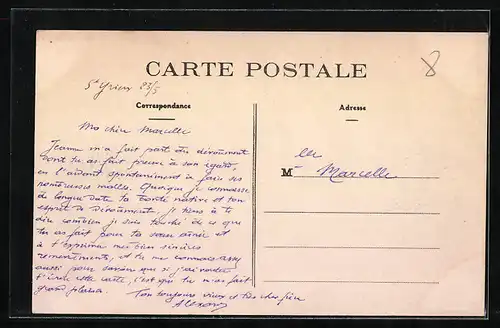 8
CARTE POSTALE
St Yrieix 23/5
Correspondance
Adresse
Ma chère Marcelle
Jeanne m'a fait part du dévouement
dont tu as fait preuve à son égard,
en l'aidant spontanément à faire ses
nombreuses malles. Quoique je connaisse
de longue date ta bonté native et ton
esprit de dévouement, je tiens à te
dire combien je suis touché de ce que
tu as fait pour ta sœur aînée et
à t'exprimer mes bien sincères
remerciements, et tu me connais assez
aussi pour savoir que si j'ai voulu
t'écrire cette carte, c'est que tu m'as fait
grand plaisir.
Ton toujours vieux et très cher frère
M lle Marcelle